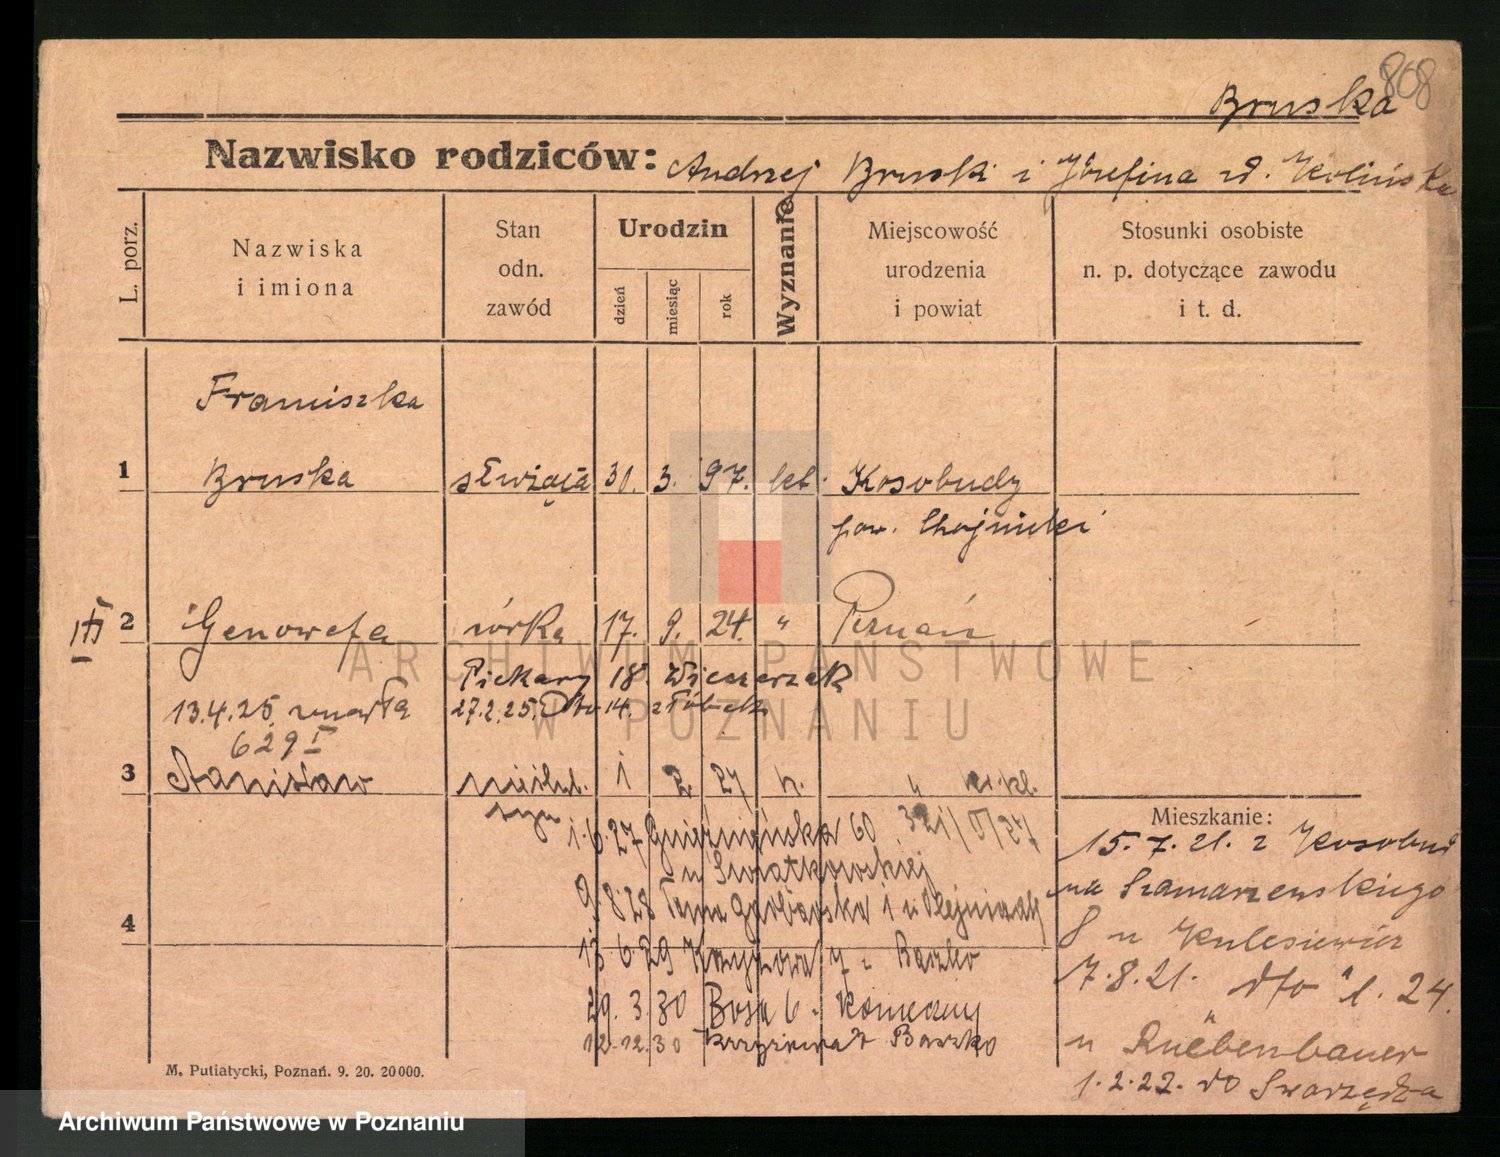 808
Bruska
Nazwisko rodziców: Andrzej Bruski i Józefina zd. Kolińska
L. porz.
Nazwiska
i imiona
Stan
odn.
zawód
Urodzin
dzień
miesiąc
rok
Wyznanie
Miejscowość
urodzenia
i powiat
Stosunki osobiste
n. p. dotyczące zawodu
i t. d.
Franciszka
1 Bruska służąca 30. 3. 97. kat. Kosobudy
pow. Chojnicki
2 Genowefa córka 17. 9. 24. " Poznań
Piekary 18. Wieczorzak
13.4.25. zmarła 27.2.25. Dto 14.
629 I
3 Stanisław nieślub. 1 2 27 k. "
syn
1.6.27 Gnieźnieńska 60 321/V/27
u Swiatkowskiej
9.8.28 Tama Garbarska 1 u Olejniczak
13.6.29 Krzyżowa 7 u Baczko
4
29.3.30 Bosa 6 - Konieczny
12.12.30 Krzyżowa 7 Baczko
Mieszkanie:
15.7.21. z Kosobud
na Szamarzewskiego
8 u Kulesiewicz
7.8.21. dto " l. 24.
u Ruebenbauer
1.2.22. do Swarzędza
M. Putiatycki, Poznań. 9. 20. 20000.
ARCHIWUM PAŃSTWOWE
W POZNANIU
Archiwum Państwowe w Poznaniu